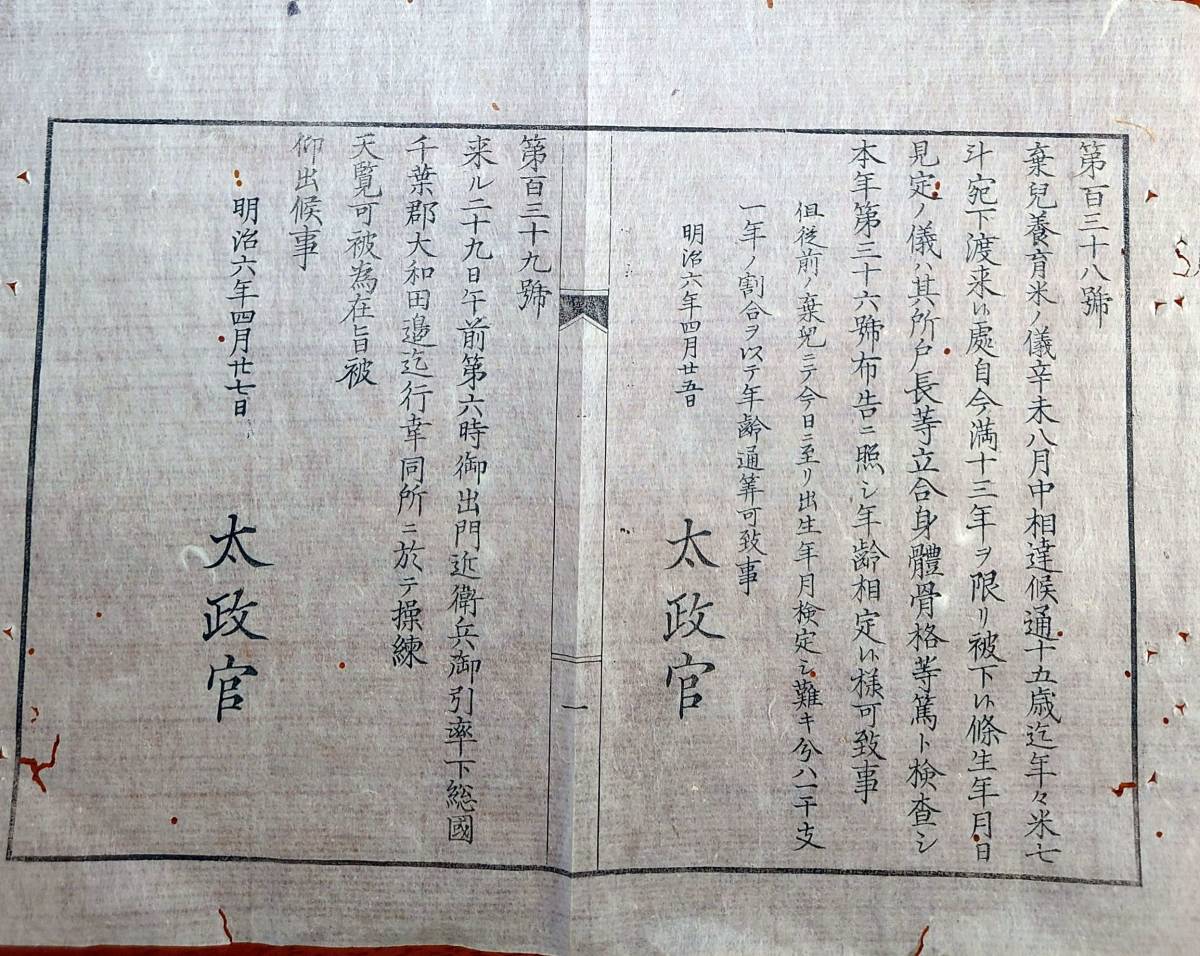 第百三十八號
棄兒養育米ノ儀辛未八月中相達候通十五歳迄年々米七
斗宛下渡来候處自今滿十三年ヲ限リ被下候條生年月日
見定ノ儀ハ其所戸長等立合身體骨格等篤ト檢査シ
本年第三十六號布告ニ照シ年齡相定候樣可致事
但從前ノ棄兒ニテ今日ニ至リ出生年月檢定シ難キ分ハ一干支
一年ノ割合ヲ以テ年齡通筭可致事
明治六年四月廿五日
太政官
一
第百三十九號
来ル二十九日午前第六時御出門近衛兵御引率下総國
千葉郡大和田邉迄行幸同所ニ於テ操練
天覽可被為在旨被
仰出候事
明治六年四月廿七日
太政官